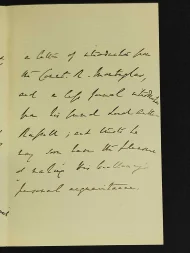 a letter of introduction from
the Count R. Montesquiou,
and a less formal introduction
from his friend Lord Arthur
Russell; and trusts he
may soon have the pleasure
of making
personal acquaintance.